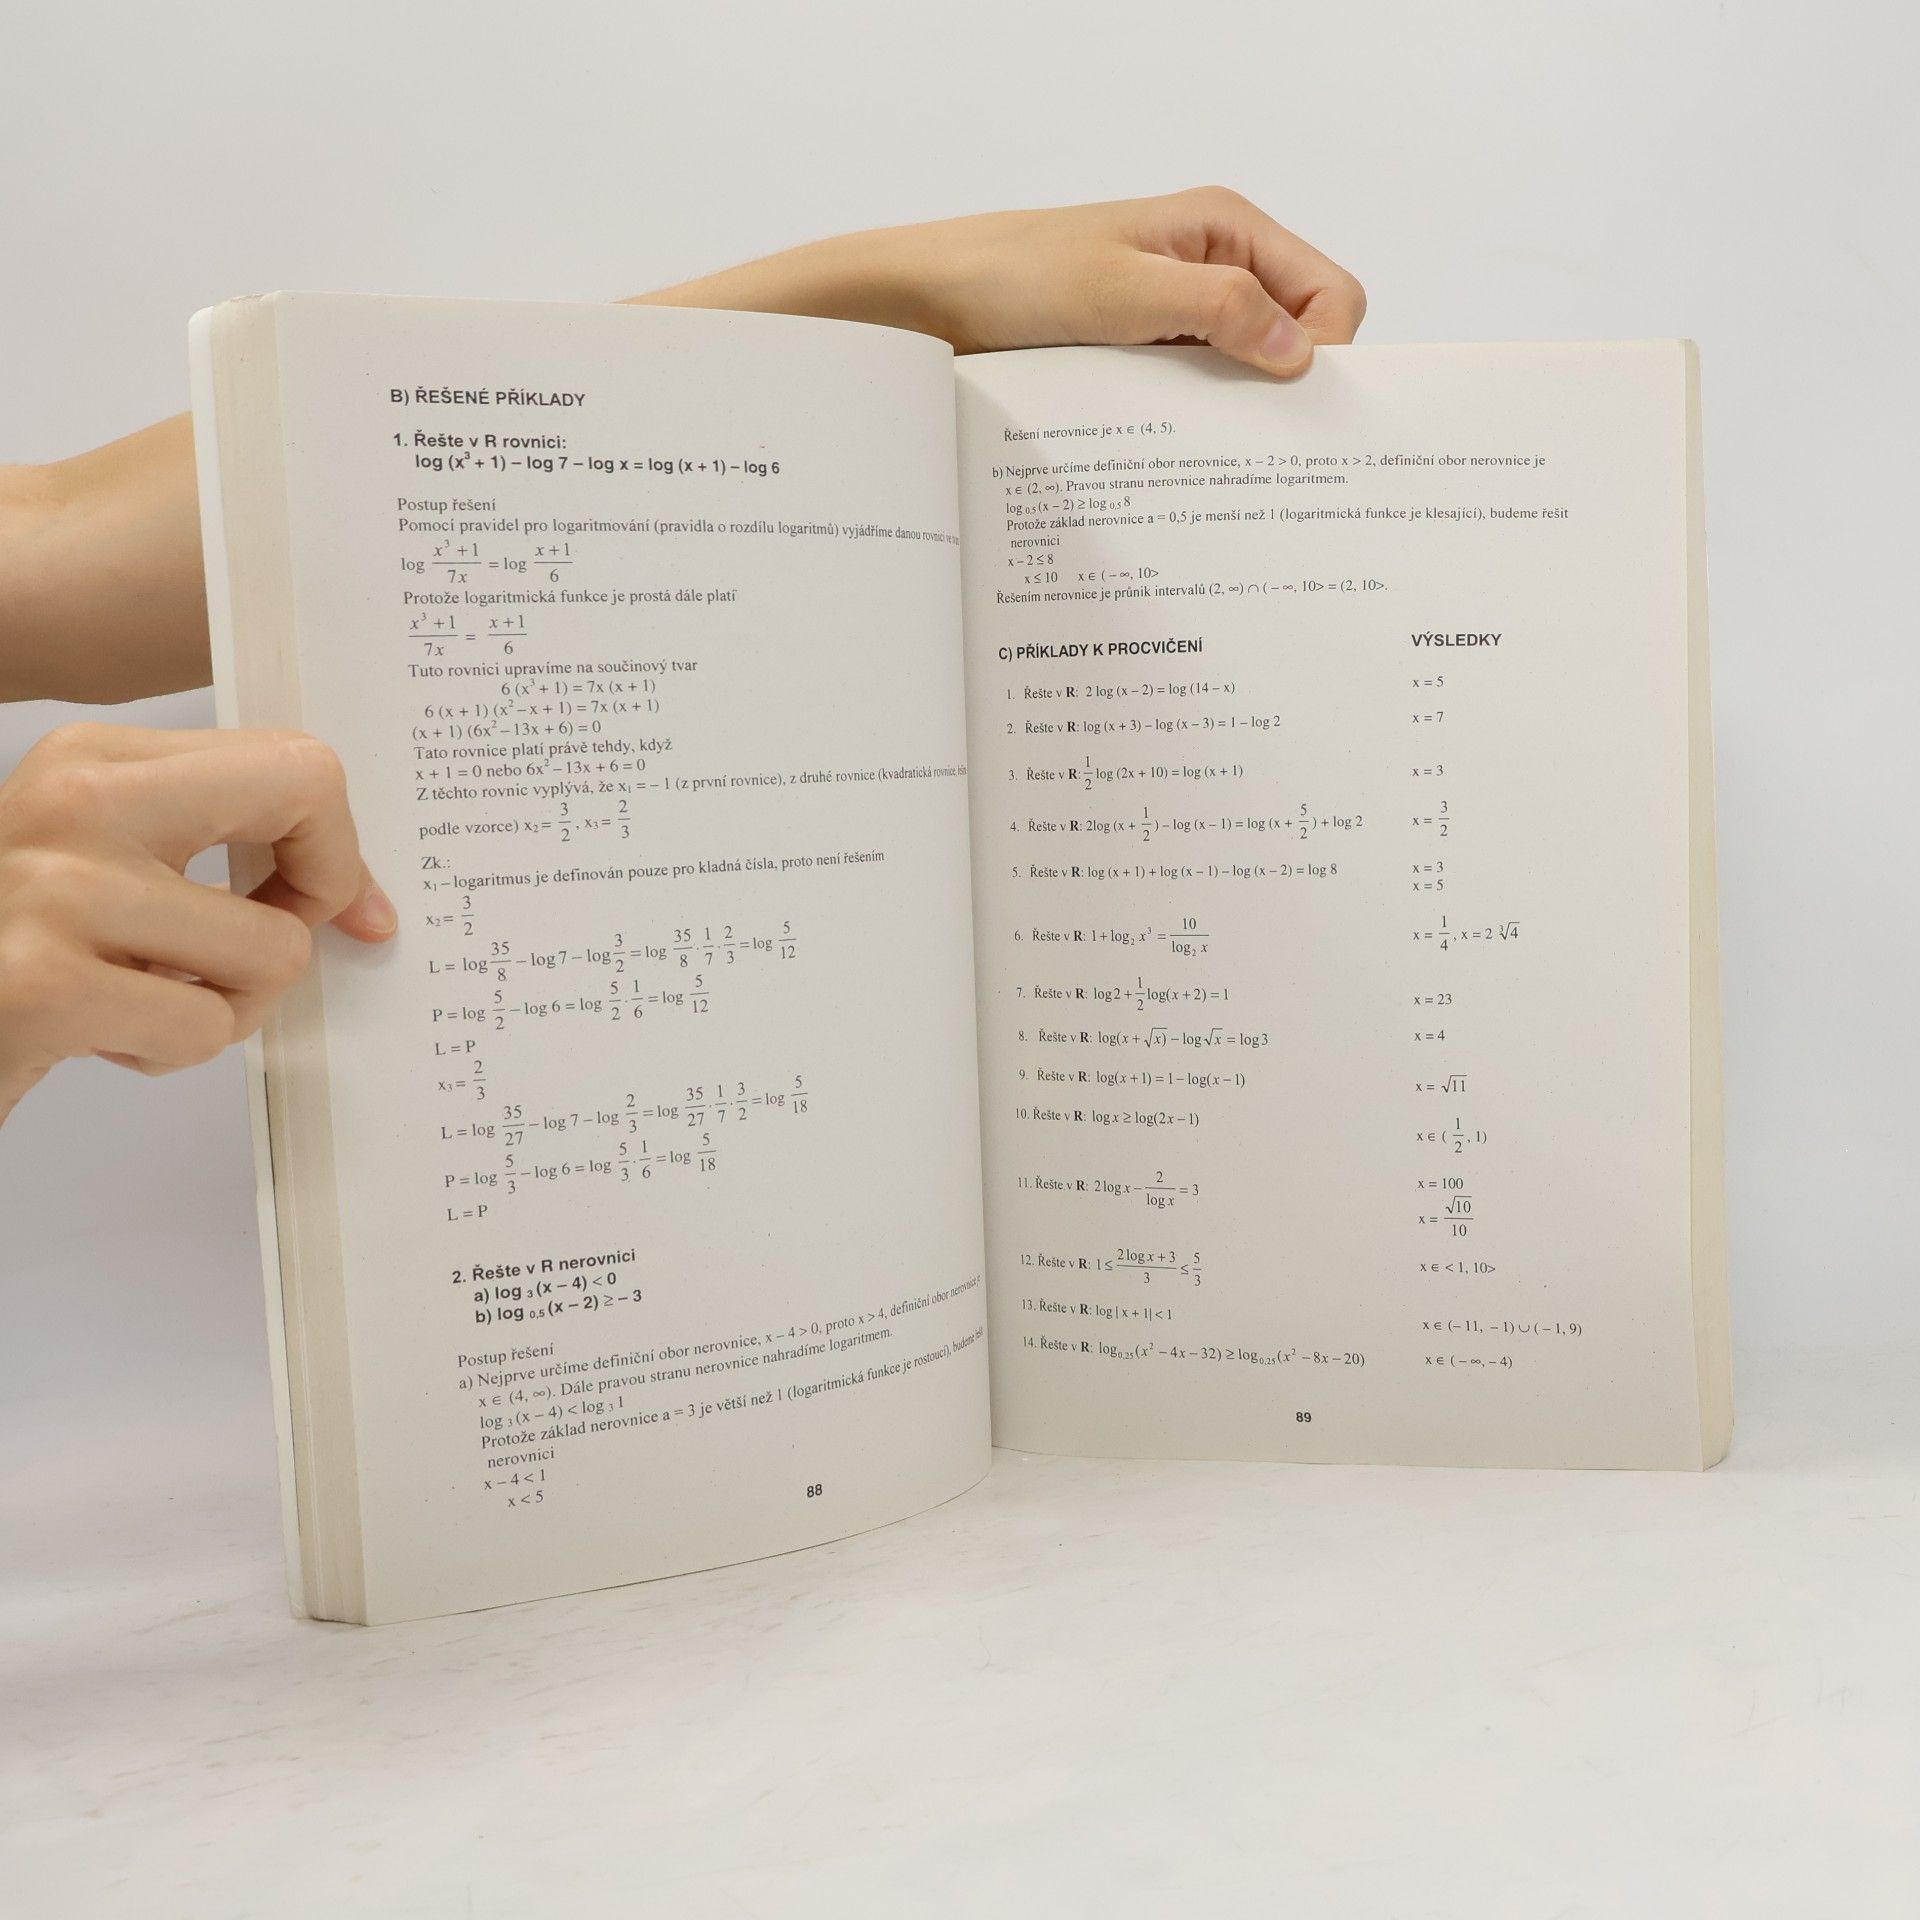 B) ŘEŠENÉ PŘÍKLADY
1. Řešte v R rovnici:
log (x³ + 1) – log 7 – log x = log (x + 1) – log 6
Postup řešení
Pomocí pravidel pro logaritmování (pravidla o rozdílu logaritmů) vyjádříme danou rovnici ve
log (x³ + 1)/(7x) = log (x + 1)/6
Protože logaritmická funkce je prostá dále platí
(x³ + 1)/(7x) = (x + 1)/6
Tuto rovnici upravíme na součinový tvar
6 (x³ + 1) = 7x (x + 1)
6 (x + 1) (x² – x + 1) = 7x (x + 1)
(x + 1) (6x² – 13x + 6) = 0
Tato rovnice platí právě tehdy, když
x + 1 = 0 nebo 6x² – 13x + 6 = 0
Z těchto rovnic vyplývá, že x₁ = – 1 (z první rovnice), z druhé rovnice (kvadratická rovnice,
podle vzorce) x₂ = 3/2, x₃ = 2/3
Zk.:
x₁ – logaritmus je definován pouze pro kladná čísla, proto není řešením
x₂ = 3/2
L = log 35/8 – log 7 – log 3/2 = log 35/8 · 1/7 · 2/3 = log 5/12
P = log 5/2 – log 6 = log 5/2 · 1/6 = log 5/12
L = P
x₃ = 2/3
L = log 35/27 – log 7 – log 2/3 = log 35/27 · 1/7 · 3/2 = log 5/18
P = log 5/3 – log 6 = log 5/3 · 1/6 = log 5/18
L = P
2. Řešte v R nerovnici
a) log ₃ (x – 4) < 0
b) log ₀,₅ (x – 2) ≥ – 3
Postup řešení
a) Nejprve určíme definiční obor nerovnice, x – 4 > 0, proto x > 4, definiční obor nerovnice
x ∈ (4, ∞). Dále pravou stranu nerovnice nahradíme logaritmem.
log ₃ (x – 4) < log ₃ 1
Protože základ nerovnice a = 3 je větší než 1 (logaritmická funkce je rostoucí), budeme
nerovnici
x – 4 < 1
x < 5
88
Řešení nerovnice je x ∈ (4, 5).
b) Nejprve určíme definiční obor nerovnice, x – 2 > 0, proto x > 2, definiční obor nerovnice je
x ∈ (2, ∞). Pravou stranu nerovnice nahradíme logaritmem.
log ₀,₅ (x – 2) ≥ log ₀,₅ 8
Protože základ nerovnice a = 0,5 je menší než 1 (logaritmická funkce je klesající), budeme řešit
nerovnici
x – 2 ≤ 8
x ≤ 10 x ∈ ( – ∞, 10>
Řešením nerovnice je průnik intervalů (2, ∞) ∩ ( – ∞, 10> = (2, 10>.
C) PŘÍKLADY K PROCVIČENÍ VÝSLEDKY
1. Řešte v R: 2 log (x – 2) = log (14 – x) x = 5
2. Řešte v R: log (x + 3) – log (x – 3) = 1 – log 2 x = 7
3. Řešte v R: 1/2 log (2x + 10) = log (x + 1) x = 3
4. Řešte v R: 2log (x + 1/2) – log (x – 1) = log (x + 5/2) + log 2 x = 3/2
5. Řešte v R: log (x + 1) + log (x – 1) – log (x – 2) = log 8 x = 3
x = 5
6. Řešte v R: 1 + log₂ x³ = 10/(log₂ x) x = 1/4, x = 2 ∛4
7. Řešte v R: log 2 + 1/2 log(x + 2) = 1 x = 23
8. Řešte v R: log(x + √x) – log √x = log 3 x = 4
9. Řešte v R: log(x + 1) = 1 – log(x – 1) x = √11
10. Řešte v R: log x ≥ log(2x – 1) x ∈ ( 1/2, 1)
11. Řešte v R: 2 log x – 2/(log x) = 3 x = 100
x = √10/10
12. Řešte v R: 1 ≤ (2 log x + 3)/3 ≤ 5/3 x ∈ < 1, 10>
13. Řešte v R: log | x + 1| < 1 x ∈ (– 11, – 1) ∪ ( – 1, 9)
14. Řešte v R: log₀,₂₅(x² – 4x – 32) ≥ log₀,₂₅(x² – 8x – 20) x ∈ ( – ∞, – 4)
89